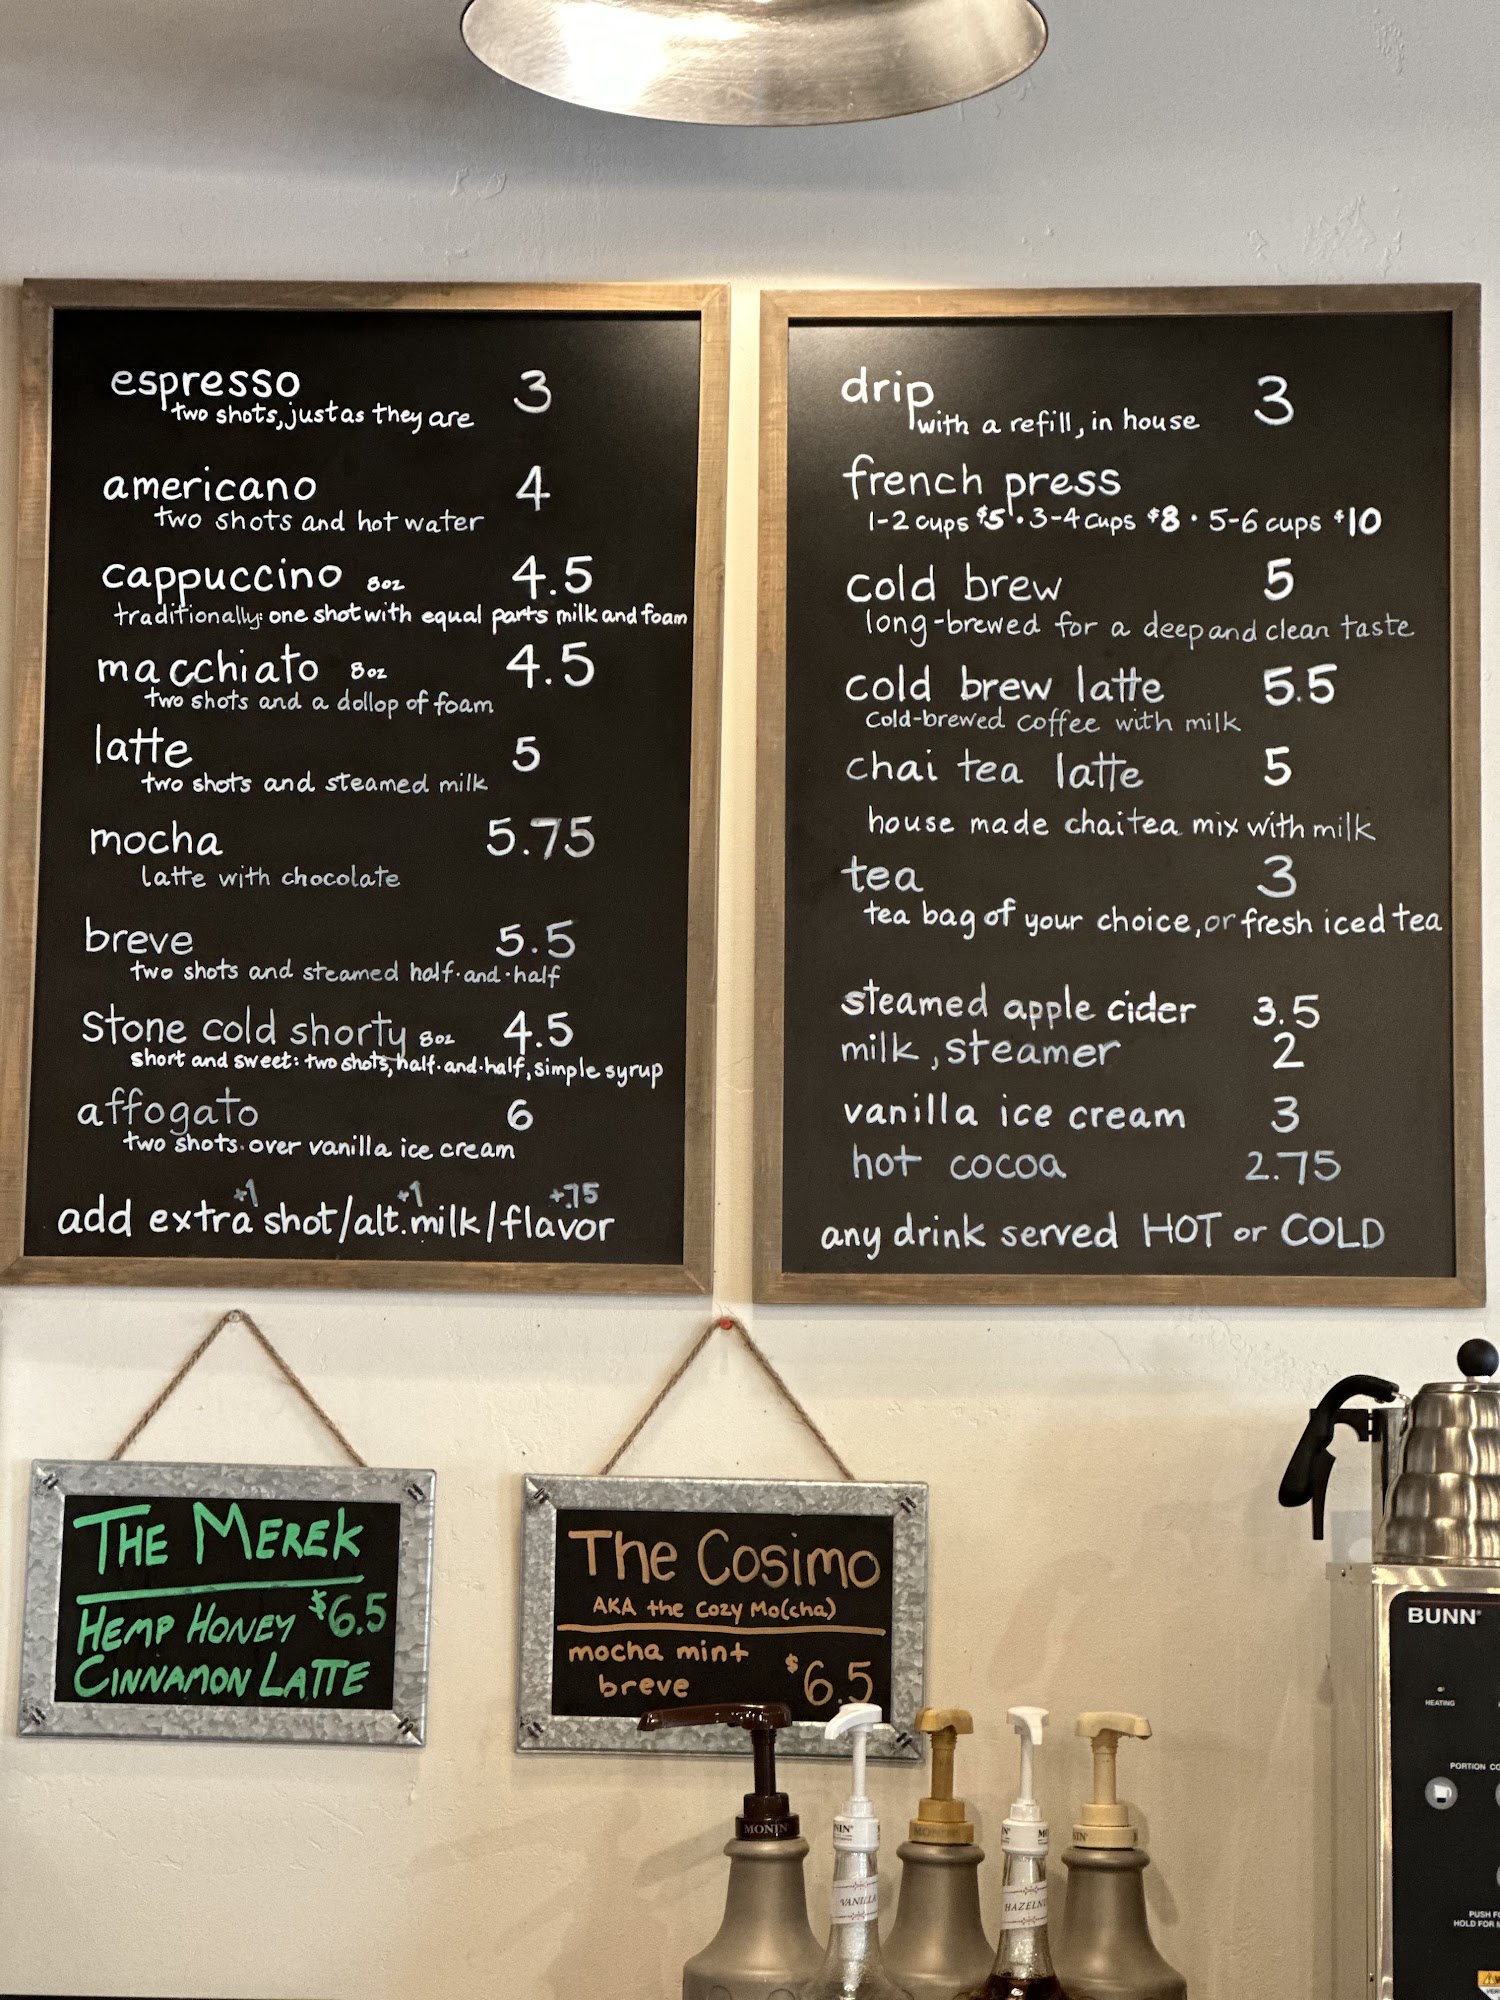 espresso 3
two shots, just as they are
americano 4
two shots and hot water
cappuccino 8oz 4.5
traditionally: one shot with equal parts milk and foam
macchiato 8oz 4.5
two shots and a dollop of foam
latte 5
two shots and steamed milk
mocha 5.75
latte with chocolate
breve 5.5
two shots and steamed half-and-half
stone cold shorty 8oz 4.5
short and sweet: two shots, half-and-half, simple syrup
affogato 6
two shots over vanilla ice cream
+1 +1 +.75
add extra shot/alt. milk/flavor
drip 3
with a refill, in house
french press
1-2 cups $5 · 3-4 cups $8 · 5-6 cups $10
cold brew 5
long-brewed for a deep and clean taste
cold brew latte 5.5
cold-brewed coffee with milk
chai tea latte 5
house made chai tea mix with milk
tea 3
tea bag of your choice, or fresh iced tea
steamed apple cider 3.5
milk, steamer 2
vanilla ice cream 3
hot cocoa 2.75
any drink served HOT or COLD
THE MEREK
HEMP HONEY $6.5
CINNAMON LATTE
The Cosimo
AKA the Cozy Mo(cha)
mocha mint
breve $6.5
MONIN
MONIN
VANILLA
BUNN
HEATING
PORTION